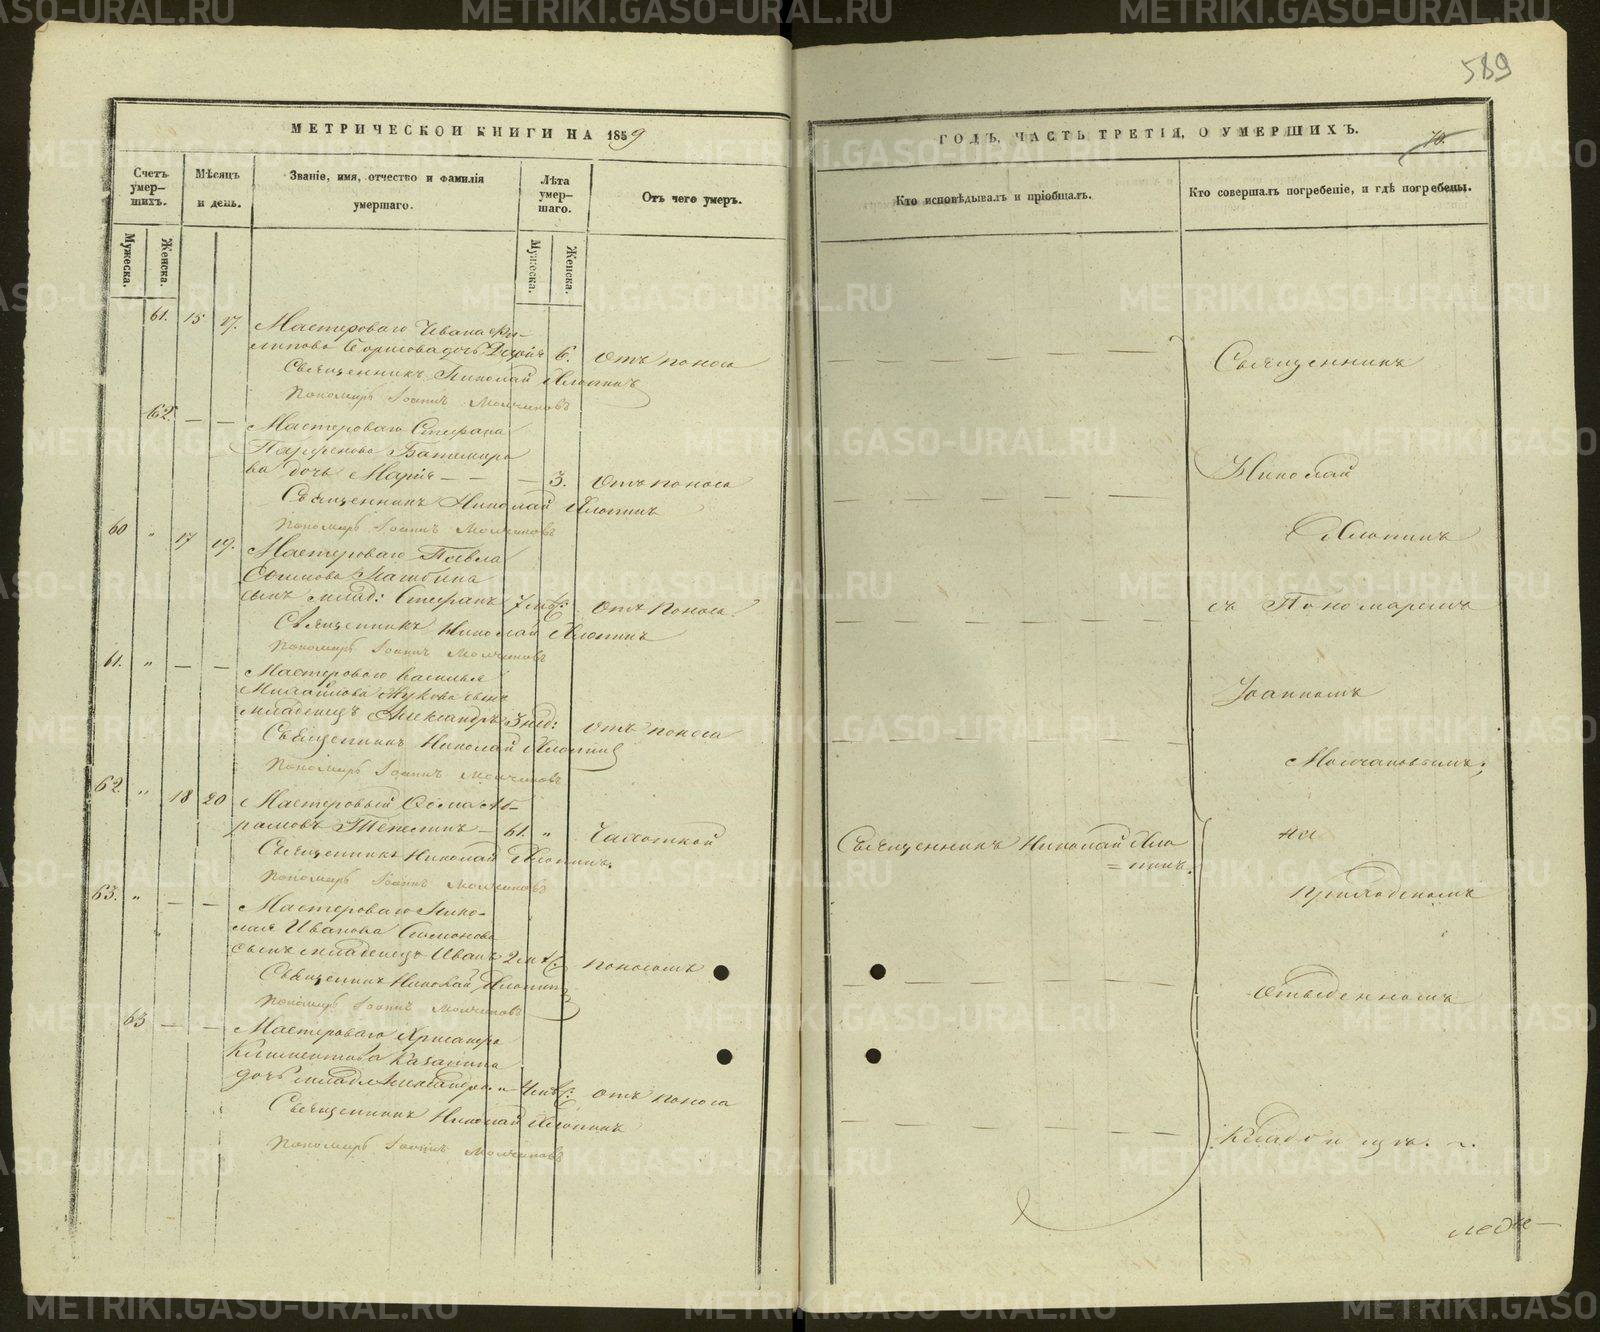 589
МЕТРИЧЕСКОЙ КНИГИ НА 1859
ГОДЪ, ЧАСТЬ ТРЕТІЯ, О УМЕРШИХЪ.
70.
Счетъ умер-шихъ.
Мѣсяцъ и день.
Званіе, имя, отчество и фамилія умершаго.
Лѣта умер-шаго.
Отъ чего умеръ.
Кто исповѣдывалъ и пріобщалъ.
Кто совершалъ погребеніе, и гдѣ погребены.
Мужеска.
Женска.
Мужеска.
Женска.
61. 15 17. Мастероваго Ивана Фи-
липова Борисова дочь 6. Отъ поноса
Священникъ Николай Хлопинъ
Пономарь Іоаннъ Молчановъ
62. — — Мастероваго Стефана
Парфенова
ва дочь Марія — — — 3. Отъ поноса
Священникъ Николай Хлопинъ
Пономарь Іоаннъ Молчановъ
60 " 17 19. Мастероваго Павла
сынъ млад: Стефанъ 7 мѣс: Отъ поноса
Священникъ Николай Хлопинъ
Пономарь Іоаннъ Молчановъ
61. " — — Мастерового Василья
Михайлова Жукова сынъ
младенецъ Александръ 3 нед: Отъ поноса
Священникъ Николай Хлопинъ
Пономарь Іоаннъ Молчановъ
62. " 18 20 Мастеровый Аб-
рамовъ — 61. " Чахоткой
Священникъ Николай Хлопинъ.
Пономарь Іоаннъ Молчановъ
63. " — — Мастероваго Нико-
лая Иванова Симонова
сынъ младенецъ Иванъ 2 мѣс: Поносомъ
Священникъ Николай Хлопинъ
Пономарь Іоаннъ Молчановъ
63 — — Мастероваго Хрисанфа
Климентова Казанина
дочь млад: Александра " 4 мѣс: Отъ поноса
Священникъ Николай Хлопинъ
Пономарь Іоаннъ Молчановъ
Священникъ Николай Хло
=пинъ.
Священникъ
Николай
Хлопинъ
съ Пономаремъ
Іоанномъ
Молчановымъ;
на
Приходскомъ
Отведенномъ
Кладбищѣ.
METRIKI.GASO-URAL.RU